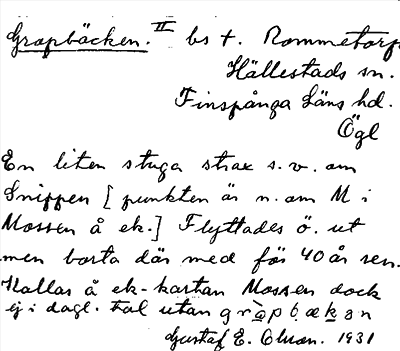 Grapbäcken. II bs t. Rommetorp
Hällestads sn.
Finspånga läns hd.
Ögl
En liten stuga strax s.v. om
Snippen [ punkten är n. om M i
Mossen å ek.] Flyttades ö. ut
men borta där med för 40 år sen.
Kallas å ek-kartan Mossen dock
ej i dagl. tal utan
Gustaf E. Olson. 1931